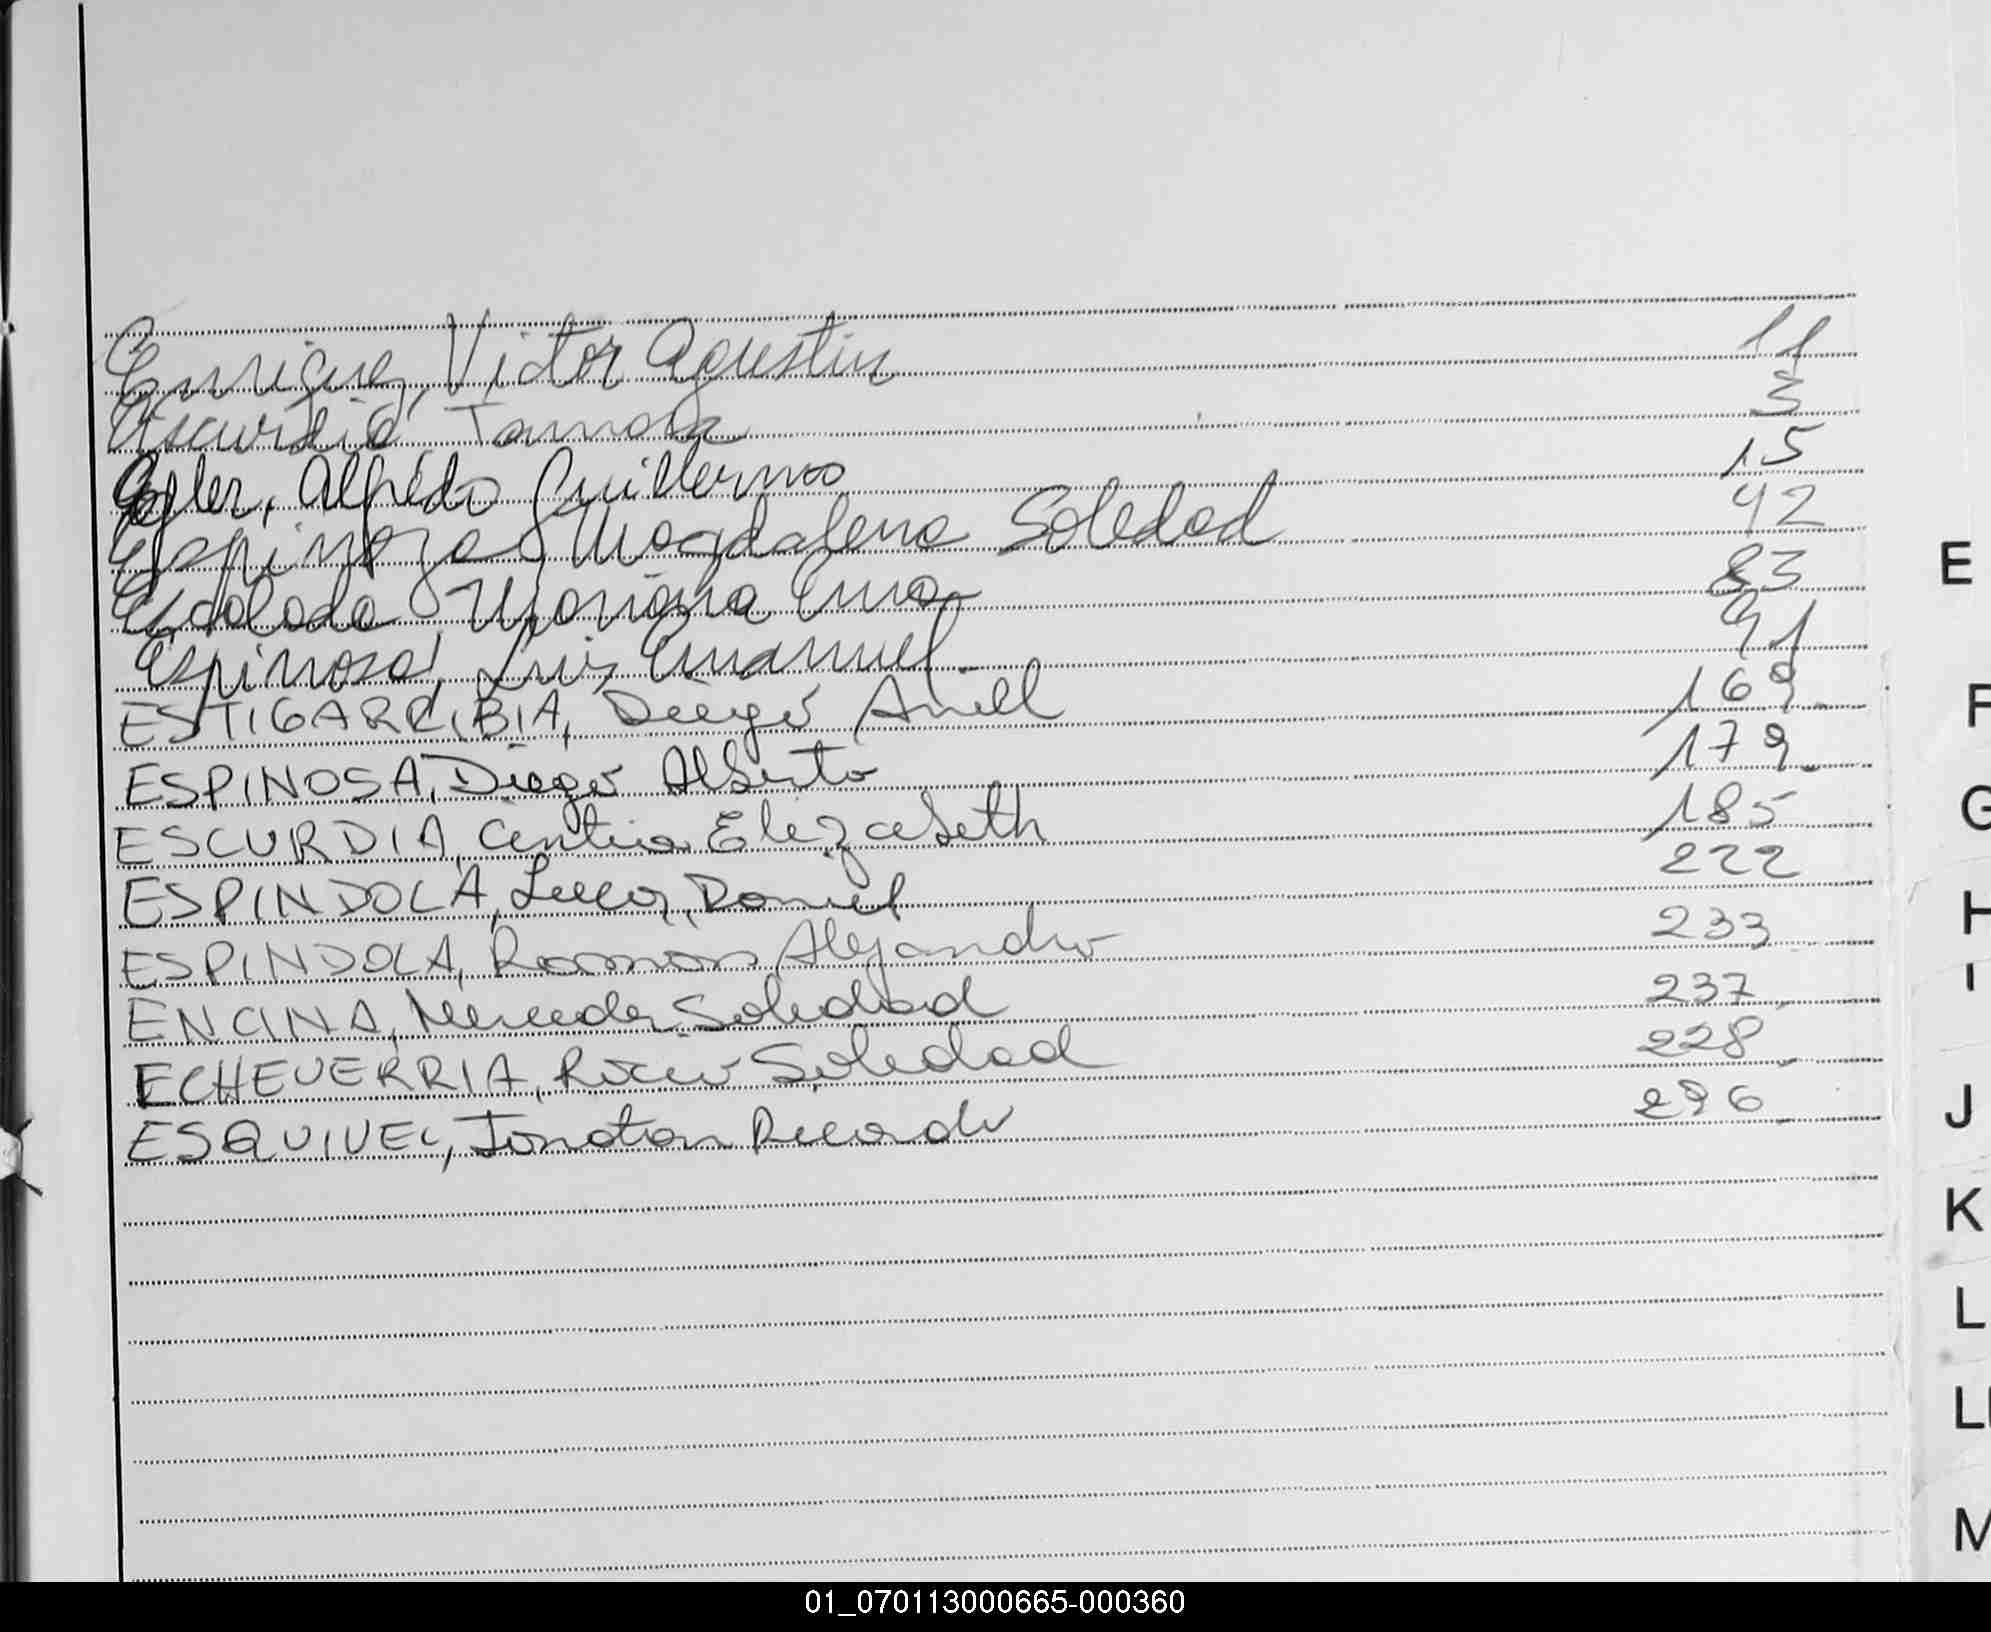 Enrique, Victor Agustin 11
Escurdia Tamara 3
Egler, Alfredo Guillermo 15
Espinoza Magdalena Soledad 42
Escalada Mariana Ema 83
Espinosa, Luis Emanuel. 91
ESTIGARRIBIA, Diego Ariel 169.
ESPINOSA, Diego Alberto 179.
ESCURDIA, Cintia Elizabeth 185
ESPINDOLA, Lucas, Daniel 222
ESPINDOLA, Ramon Alejandro 233
ENCINA, Mercedes Soledad 237
ECHEVERRIA, Rocio Soledad 228
ESQUIVEL, Jonatan Ricardo 296
E
F
G
H
I
J
K
L
M
01_070113000665-000360